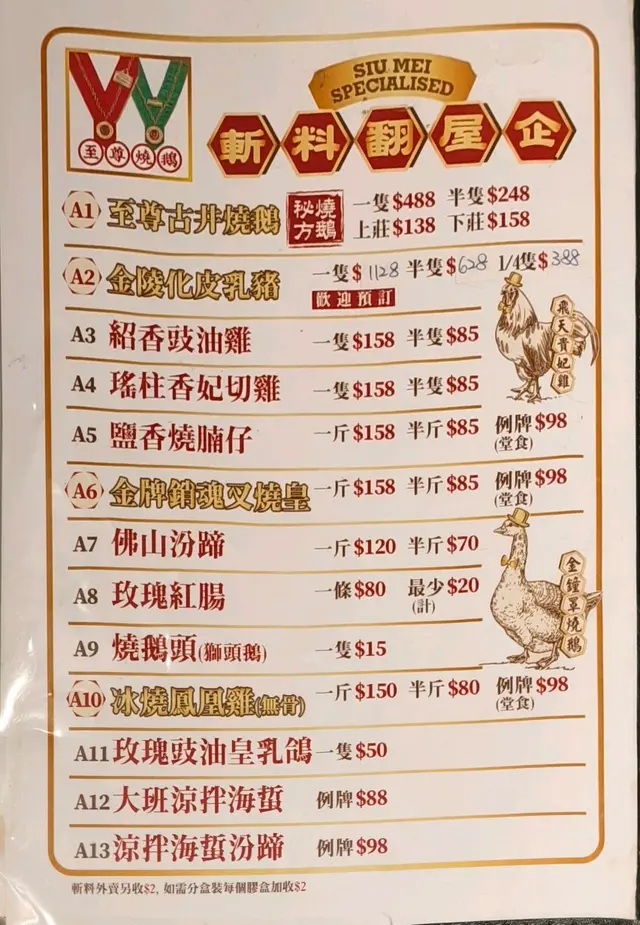 SIU MEI
SPECIALISED
至尊燒鵝
斬料翻屋企
A1 至尊古井燒鵝 秘方燒鵝 一隻$488 半隻$248
上莊$138 下莊$158
A2 金陵化皮乳豬 一隻$1128 半隻$628 1/4隻$388
歡迎預訂
飛天貴妃雞
A3 紹香豉油雞 一隻$158 半隻$85
A4 瑤柱香妃切雞 一隻$158 半隻$85
A5 鹽香燒腩仔 一斤$158 半斤$85 例牌$98
(堂食)
A6 金牌銷魂叉燒皇 一斤$158 半斤$85 例牌$98
(堂食)
A7 佛山汾蹄 一斤$120 半斤$70
金鐘罩燒鵝
A8 玫瑰紅腸 一條$80 最少$20
(計)
A9 燒鵝頭(獅頭鵝) 一隻$15
A10 冰燒鳳凰雞(無骨) 一斤$150 半斤$80 例牌$98
(堂食)
A11 玫瑰豉油皇乳鴿 一隻$50
A12 大班涼拌海蜇 例牌$88
A13 涼拌海蜇汾蹄 例牌$98
斬料外賣另收$2, 如需分盒裝每個膠盒加收$2